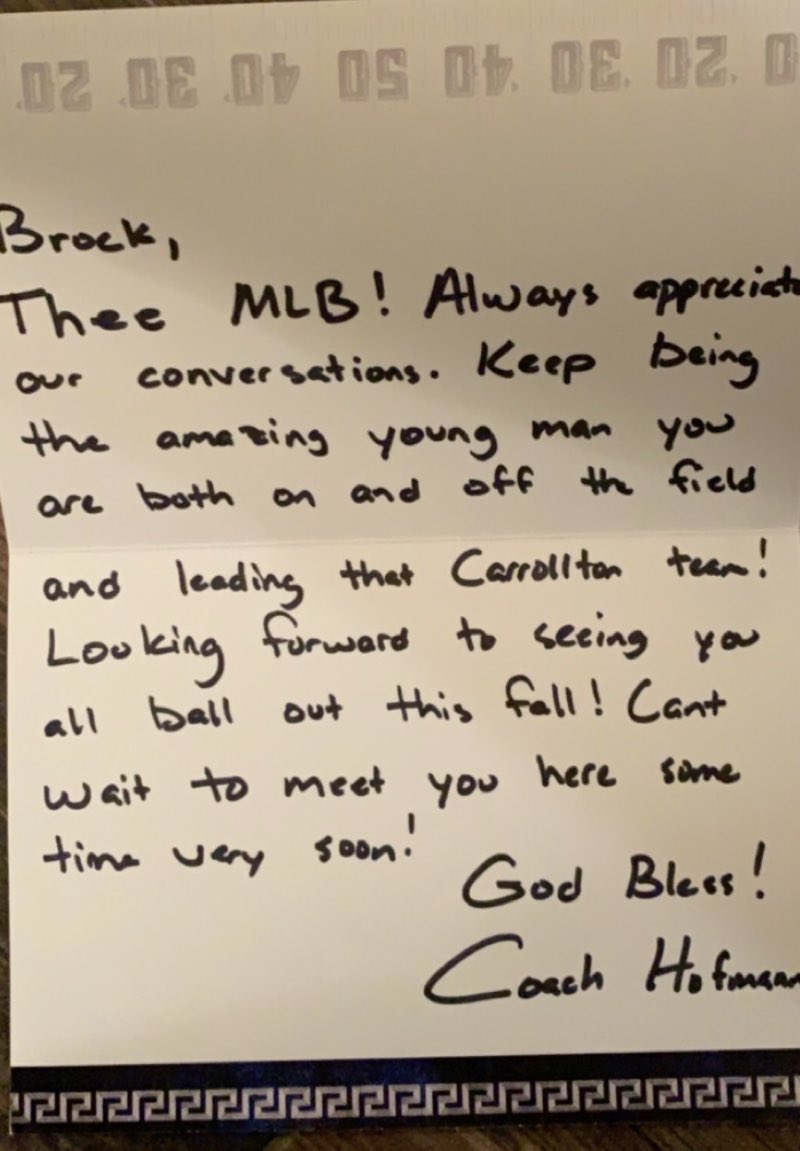 20 30 40 50 40 30 20 0
Brock,
Thee MLB! Always appreciate
our conversations. Keep being
the amazing young man you
are both on and off the field
and leading that Carrollton team!
Looking forward to seeing you
all ball out this fall! Cant
wait to meet you here some
time very soon!
God Bless!
Coach Hofmann